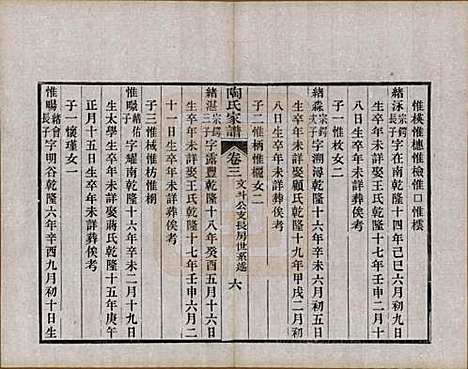 惟棪惟橞惟檢惟口惟檏
緒泳宗鍔長子字在南乾隆十四年己巳六月初九日
生卒年未詳娶王氏乾隆十七年壬申二月十
八日生卒年未詳葬俟考
緒淼宗鍔次子字溯濤乾隆十六年辛未六月初五日
生卒年未詳娶顧氏乾隆十九年甲戌二月初
八日生卒年未詳葬俟考
子一惟枚女二
子二惟柄惟欐女二
陶氏家譜
卷三
文斗公支長房世系述
六
緒湛宗鍔三子字露豐乾隆十八年癸酉五月十六日
生卒年未詳娶王氏乾隆十七年壬申六月二
十一日生卒年未詳葬俟考
子三惟楲惟枋惟棡
惟曔字耀南乾隆十六年辛未二月十九日
生太學生卒年未詳娶蔣氏乾隆十五年庚午
正月十五日生卒年未詳葬俟考
子一懷瑾女一
惟暘緒會長子字明谷乾隆六年辛酉九月初十日生